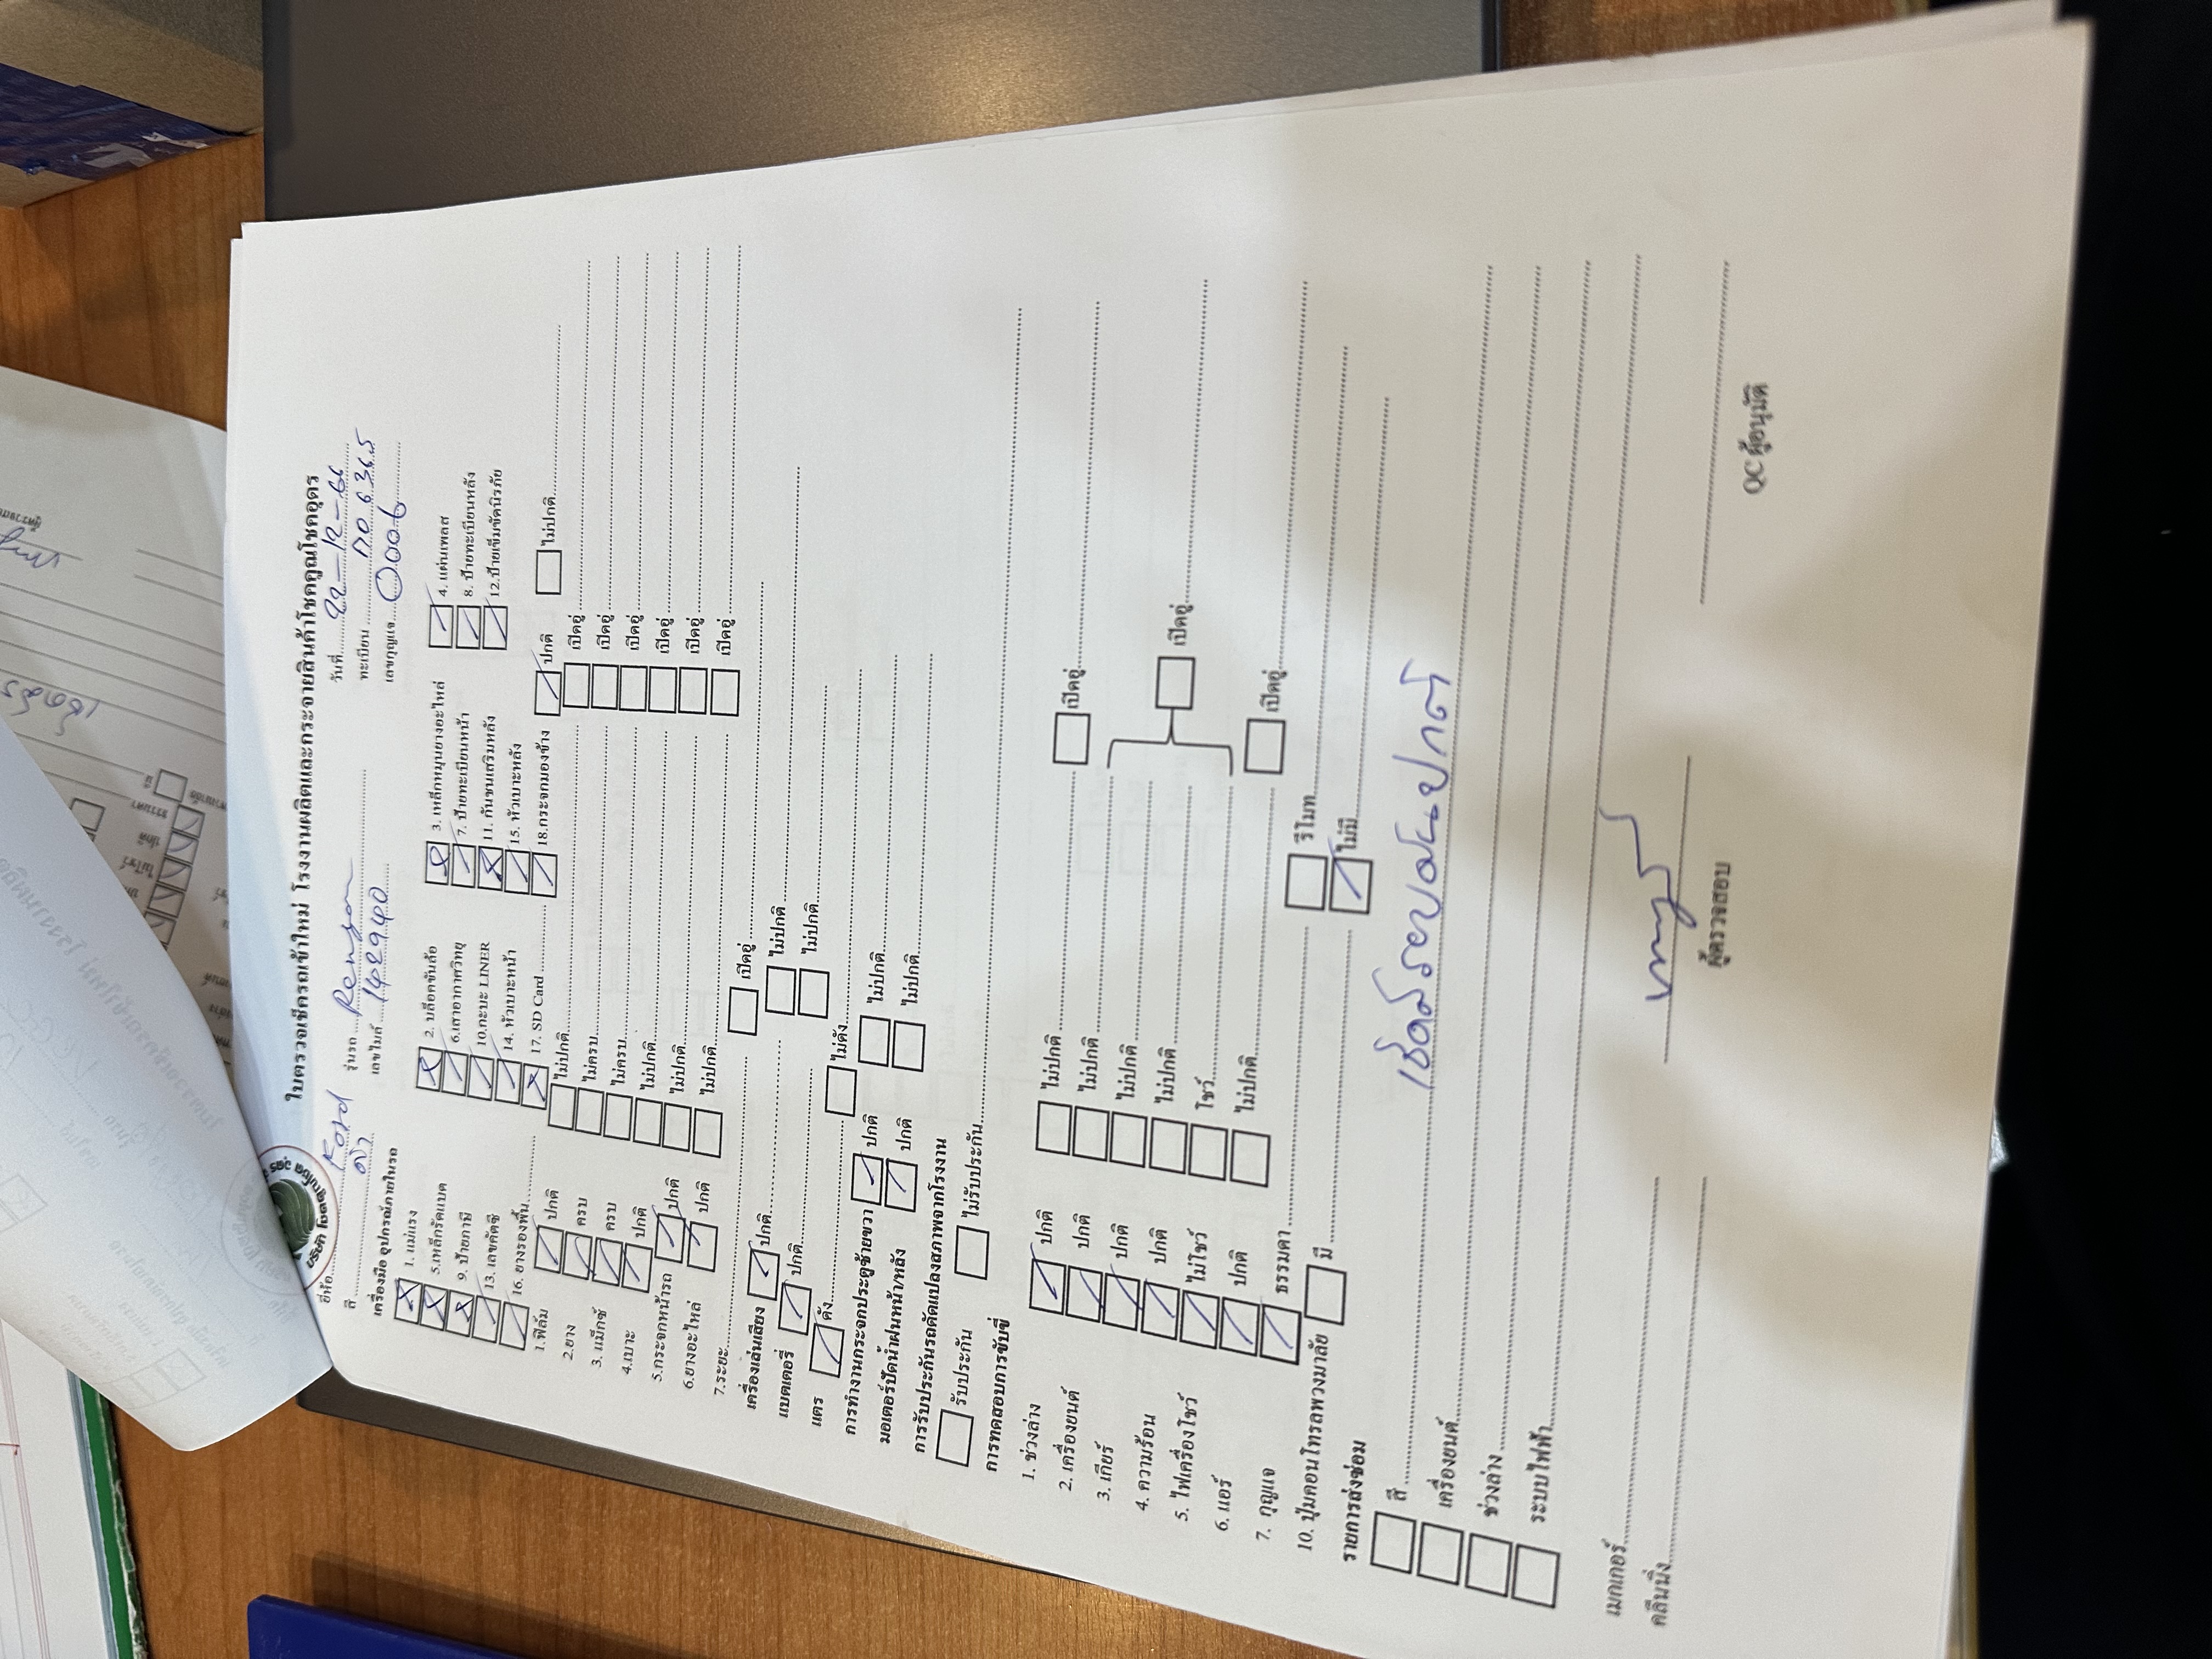 ใบตรวจเช็ครถเข้าใหม่ โรงงานผลิตและกระจายสินค้าโชคคูณโชคอุดร
ยี่ห้อ Ford รุ่นรถ วันที่ 22-12-66
สี ดำ เลขไมล์ 142940 ทะเบียน
เลขกุญแจ 0006
เครื่องมือ อุปกรณ์ภายในรถ
1. แม่แรง 2. บล็อคขันล้อ 3. เหล็กหมุนยางอะไหล่ 4. แผ่นเพลส
5.เหล็กรัดแบต 6.เสาอากาศวิทยุ 7. ป้ายทะเบียนหน้า 8. ป้ายทะเบียนหลัง
9. ป้ายภาษี 10.กะบะ LINER 11. กันชนเสริมหลัง 12.ป้ายเข็มขัดนิรภัย
13. เลขคัตซี 14. หัวเบาะหน้า 15. หัวเบาะหลัง
16. ยางรองพื้น 17. SD Card 18.กระจกมองข้าง ปกติ ไม่ปกติ
1.ฟิล์ม ปกติ ไม่ปกติ เปิดอู่
2.ยาง ครบ ไม่ครบ เปิดอู่
3. แม็กซ์ ครบ ไม่ครบ เปิดอู่
4.เบาะ ปกติ ไม่ปกติ เปิดอู่
5.กระจกหน้ารถ ปกติ ไม่ปกติ เปิดอู่
6.ยางอะไหล่ ปกติ ไม่ปกติ เปิดอู่
7.ระยะ เปิดอู่
เครื่องเล่นเสียง ปกติ ไม่ปกติ
แบตเตอรี่ ปกติ ไม่ปกติ
แตร ดัง ไม่ดัง
การทำงานกระจกประตูซ้ายขวา ปกติ ไม่ปกติ
มอเตอร์ปัดน้ำฝนหน้า/หลัง ปกติ ไม่ปกติ
การรับประกันรถดัดแปลงสภาพจากโรงงาน
รับประกัน ไม่รับประกัน
การทดสอบการขับขี่
1. ช่วงล่าง ปกติ ไม่ปกติ เปิดอู่
2. เครื่องยนต์ ปกติ ไม่ปกติ
3. เกียร์ ปกติ ไม่ปกติ
4. ความร้อน ปกติ ไม่ปกติ เปิดอู่
5. ไฟเครื่องโชว์ ไม่โชว์ โชว์
6. แอร์ ปกติ ไม่ปกติ เปิดอู่
7. กุญแจ ธรรมดา รีโมท
10. ปุ่มคอนโทรลพวงมาลัย มี ไม่มี
รายการส่งซ่อม
สี
เครื่องยนต์
ช่วงล่าง
ระบบไฟฟ้า
เมกเกอร์
คลีนนิ่ง ผู้ตรวจสอบ QC ผู้อนุมัติ